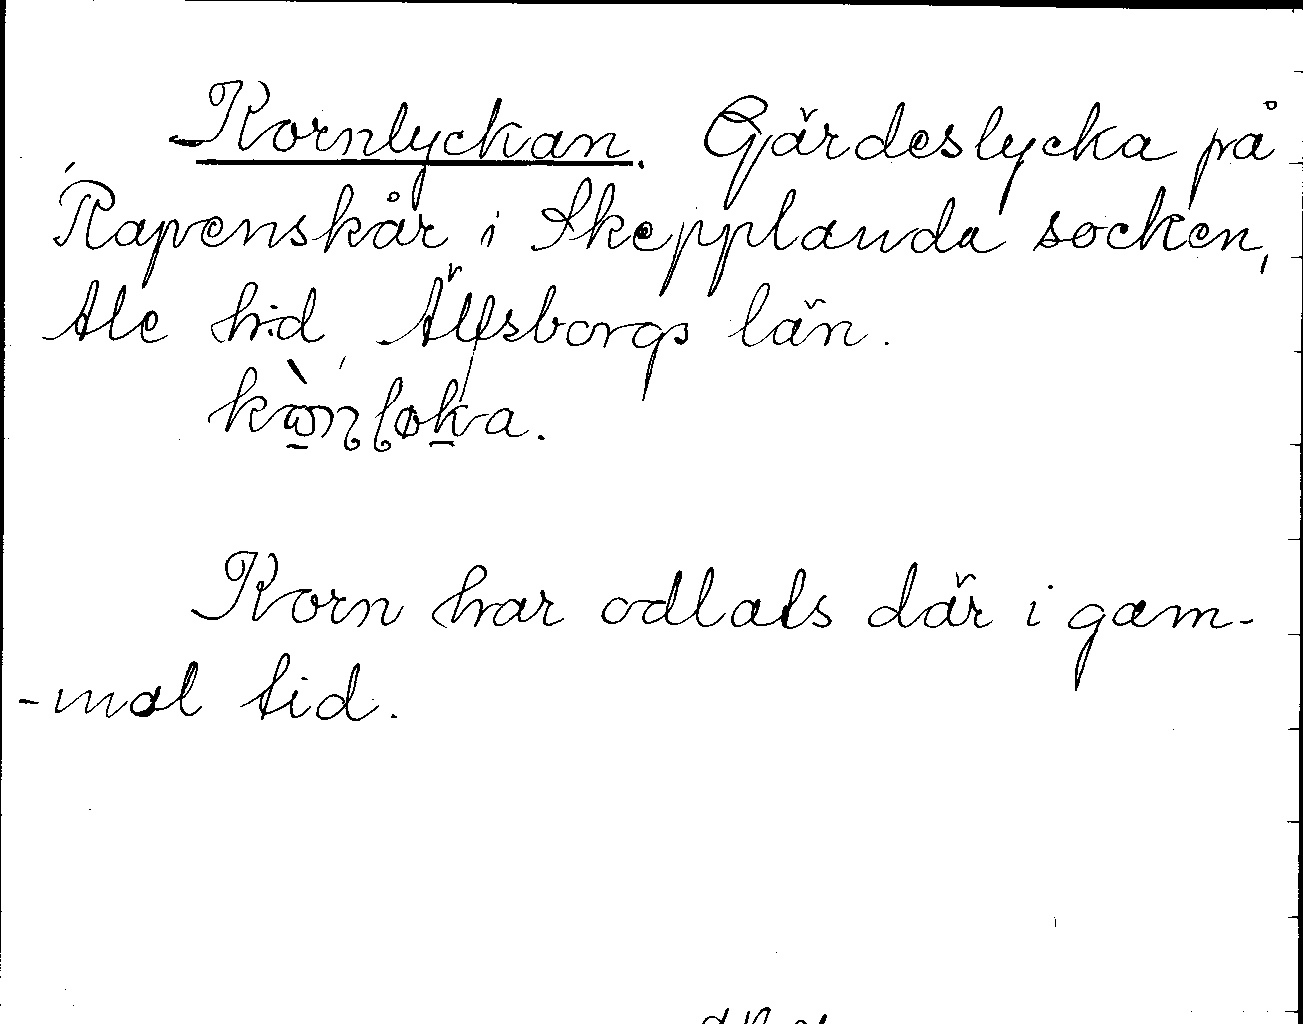 Kornlyckan. Gärdeslycka på
Rapenskår i Skepplanda socken,
Ale hd, Älfsborgs län.
Korn har odlats där i gam-
-mal tid.